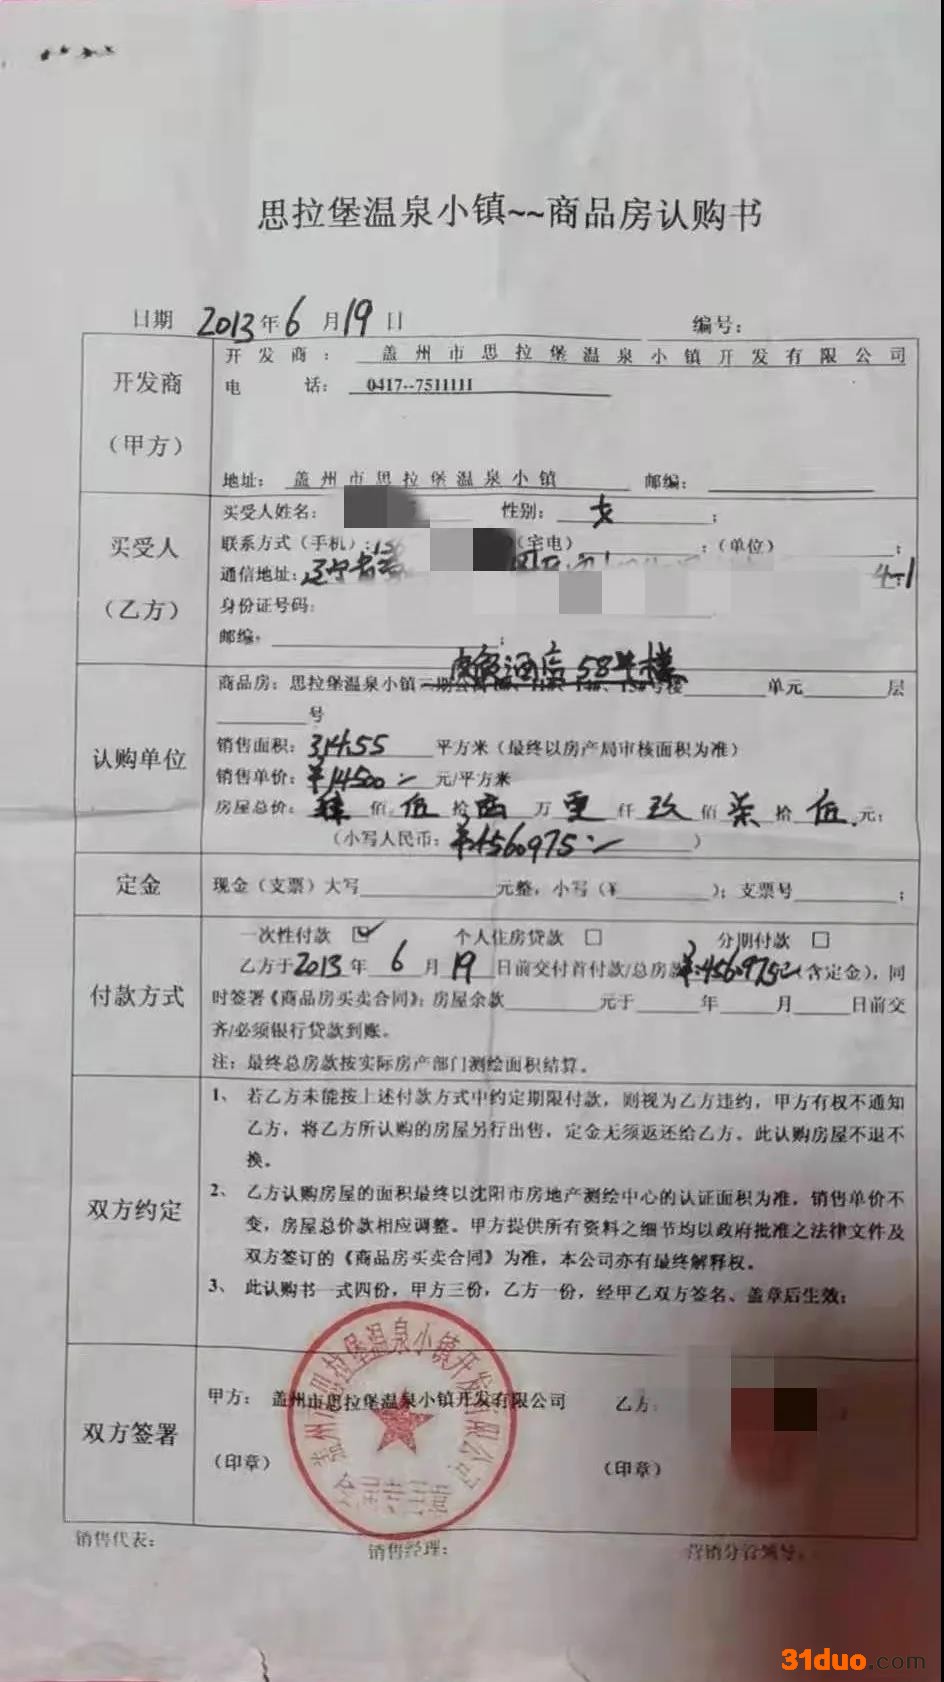 思拉堡温泉小镇~~商品房认购书
日期 2013年6月19日 编号:
开发商
(甲方)
开发商: 盖州市思拉堡温泉小镇开发有限公司
电话: 0417--7511111
地址: 盖州市思拉堡温泉小镇 邮编:
买受人
(乙方)
买受人姓名: 性别: 女 ;
联系方式(手机): (宅电) ;(单位) ;
通信地址: 辽宁省 4-1
身份证号码:
邮编: ;
认购单位
58#楼
商品房: 思拉堡温泉小镇 号楼 单元 层
号
销售面积: 314.55 平方米(最终以房产局审核面积为准)
销售单价: ¥14500 元/平方米
房屋总价: 肆 佰 伍 拾 万 仟 玖 佰 柒 拾 伍 元;
(小写人民币: ¥4560975 )
定金
现金(支票)大写 元整, 小写(¥ ); 支票号 ;
付款方式
一次性付款 ☑ 个人住房贷款 □ 分期付款 □
乙方于2013年6月19日前交付首付款/总房款¥4560975(含定金), 同
时签署《商品房买卖合同》; 房屋余款 元于 年 月 日前交
齐/必须银行贷款到账。
注: 最终总房款按实际房产部门测绘面积结算。
双方约定
1、 若乙方未能按上述付款方式中约定期限付款, 则视为乙方违约, 甲方有权不通知
乙方, 将乙方所认购的房屋另行出售, 定金无须返还给乙方。此认购房屋不退不
换。
2、 乙方认购房屋的面积最终以沈阳市房地产测绘中心的认证面积为准, 销售单价不
变, 房屋总价款相应调整。甲方提供所有资料之细节均以政府批准之法律文件及
双方签订的《商品房买卖合同》为准, 本公司亦有最终解释权。
3、 此认购书一式四份, 甲方三份, 乙方一份, 经甲乙双方签名、盖章后生效;
双方签署
甲方: 盖州市思拉堡温泉小镇开发有限公司 乙方:
(印章) (印章)
盖州市思拉堡温泉小镇开发有限公司
销售代表: 销售经理: 营销分管领导:
31duo.com